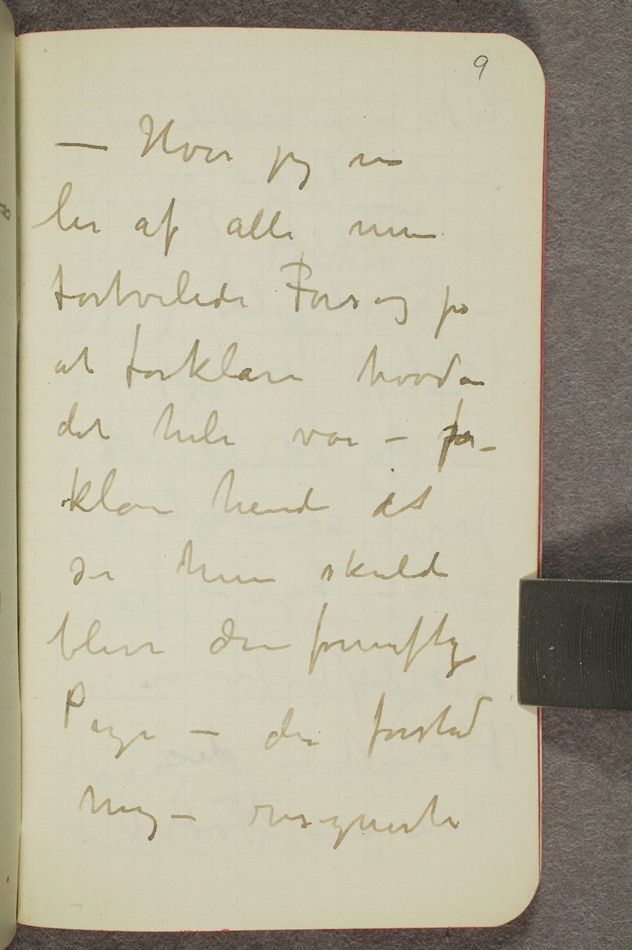 9
— Hvor jeg nu
ler af alle mine
fortvilede Forsøg på
at forklare hvordan
det hele var – for-
klare hende det
så hun skulde
blive den fornuftige
Pige – der forstod
mig – resignerte